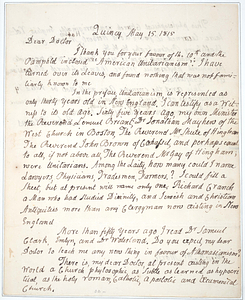 Quincy May 15. 1815
Dear Doctor
I thank you for your favour of the 10th and the
Pamphlet inclosed "American Unitarianism". I have
turned over its leaves, and found nothing that was not fami=
liarly known to me.
In the preface Unitarianism is represented as
only thirty years old in New England. I can testify as a Wit=
ness to its old age. Sixty five years ago my own Minister
the Reverend Lemuel Briant, Dr Jonathan Mayhew of the
West Church in Boston, The Reverend Mr Shute of Hingham
The Reverend John Brown of Cohasset, and perhaps equal
to all, if not above all The Reverend Mr Gay of Hingham,
were Unitarians. Among the Laity how many could I name,
Lawyers, Physicians, Tradesmen, Farmers! I could fill a
sheet, but at present will name only one, Richard Cranch
a Man who had studied Divinity, and Jewish and Christian
Antiquities more than any Clergyman now existing in New
England
More than fifty years ago I read Dr Samuel
Clark, Emlyn, and Dr Waterland. Do you expect, my dear
Doctor to teach me any new thing in favour of Athanasianism?
There is, my dear Doctor, at present existing in the
World a Church Philosophic, as Subtle, as learned, as hypocri=
tical, as the holy roman, Catholic, Apostolic and Ecumenical
Church.